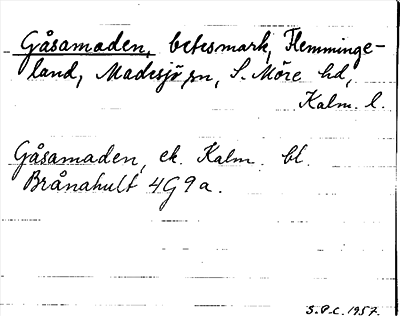 Gåsamaden, betesmark, Flemminge-
land, Madesjö sn, S. Möre hd,
Kalm. l.
Gåsamaden, ek. Kalm. bl.
Brånahult 4G9a.
S.P.C. 1957.